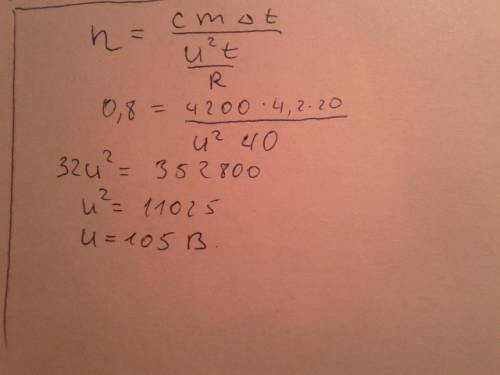 η = cmΔt / (u²t / R)
0,8 = 4200 · 4,2 · 20 / u² 40
32u² = 352800
u² = 11025
u = 105 В.